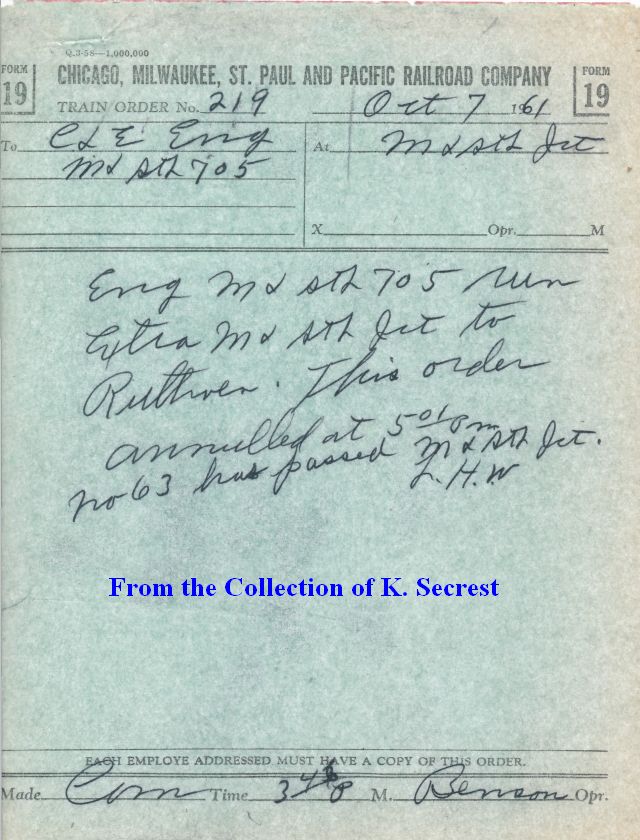 Q.3-58—1,000,000
FORM 19 CHICAGO, MILWAUKEE, ST. PAUL AND PACIFIC RAILROAD COMPANY FORM 19
TRAIN ORDER No. 219 Oct 7 1961
To C & E Eng At M & StL Jct
M & StL 705
X Opr. M
Eng M & StL 705 run
Extra M & StL Jct to
Ruthven. This order
annulled at 501 pm
no 63 has passed M & StL Jct.
L.H.W
From the Collection of K. Secrest
EACH EMPLOYE ADDRESSED MUST HAVE A COPY OF THIS ORDER.
Made Com Time M. Benson Opr.